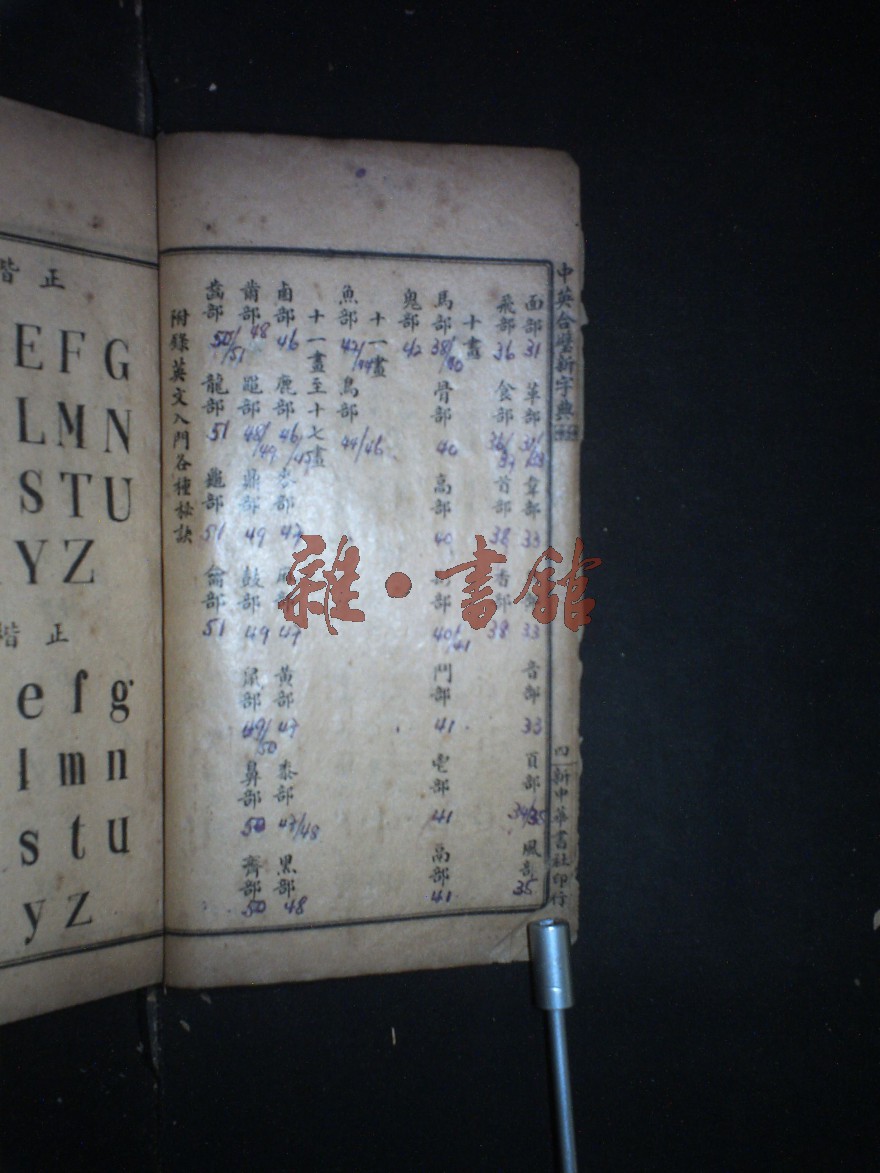 中英合璧新字典
四 新中華書社印行
面部 31 革部 韋部 33 部 33 音部 33 頁部 34/35 風部 35
飛部 36 食部 36/37 首部 38 香部 38
十畫
馬部 骨部 40 高部 40 部 40/41 鬥部 41 鬯部 41 鬲部 41
鬼部 42
十一畫
魚部 42/44 鳥部 44/46
十一畫至十七畫
鹵部 46 鹿部 46/47 麥部 47 麻部 47 黃部 47 黍部 47/48 黑部 48
黹部 48 黽部 48/49 鼎部 49 鼓部 49 鼠部 49/50 鼻部 50 齊部 50
齒部 50/51 龍部 51 龜部 51 龠部 51
附錄英文入門各種秘訣
正楷
E F G
L M N
S T U
Y Z
正楷
e f g
l m n
s t u
y z
雜·書館